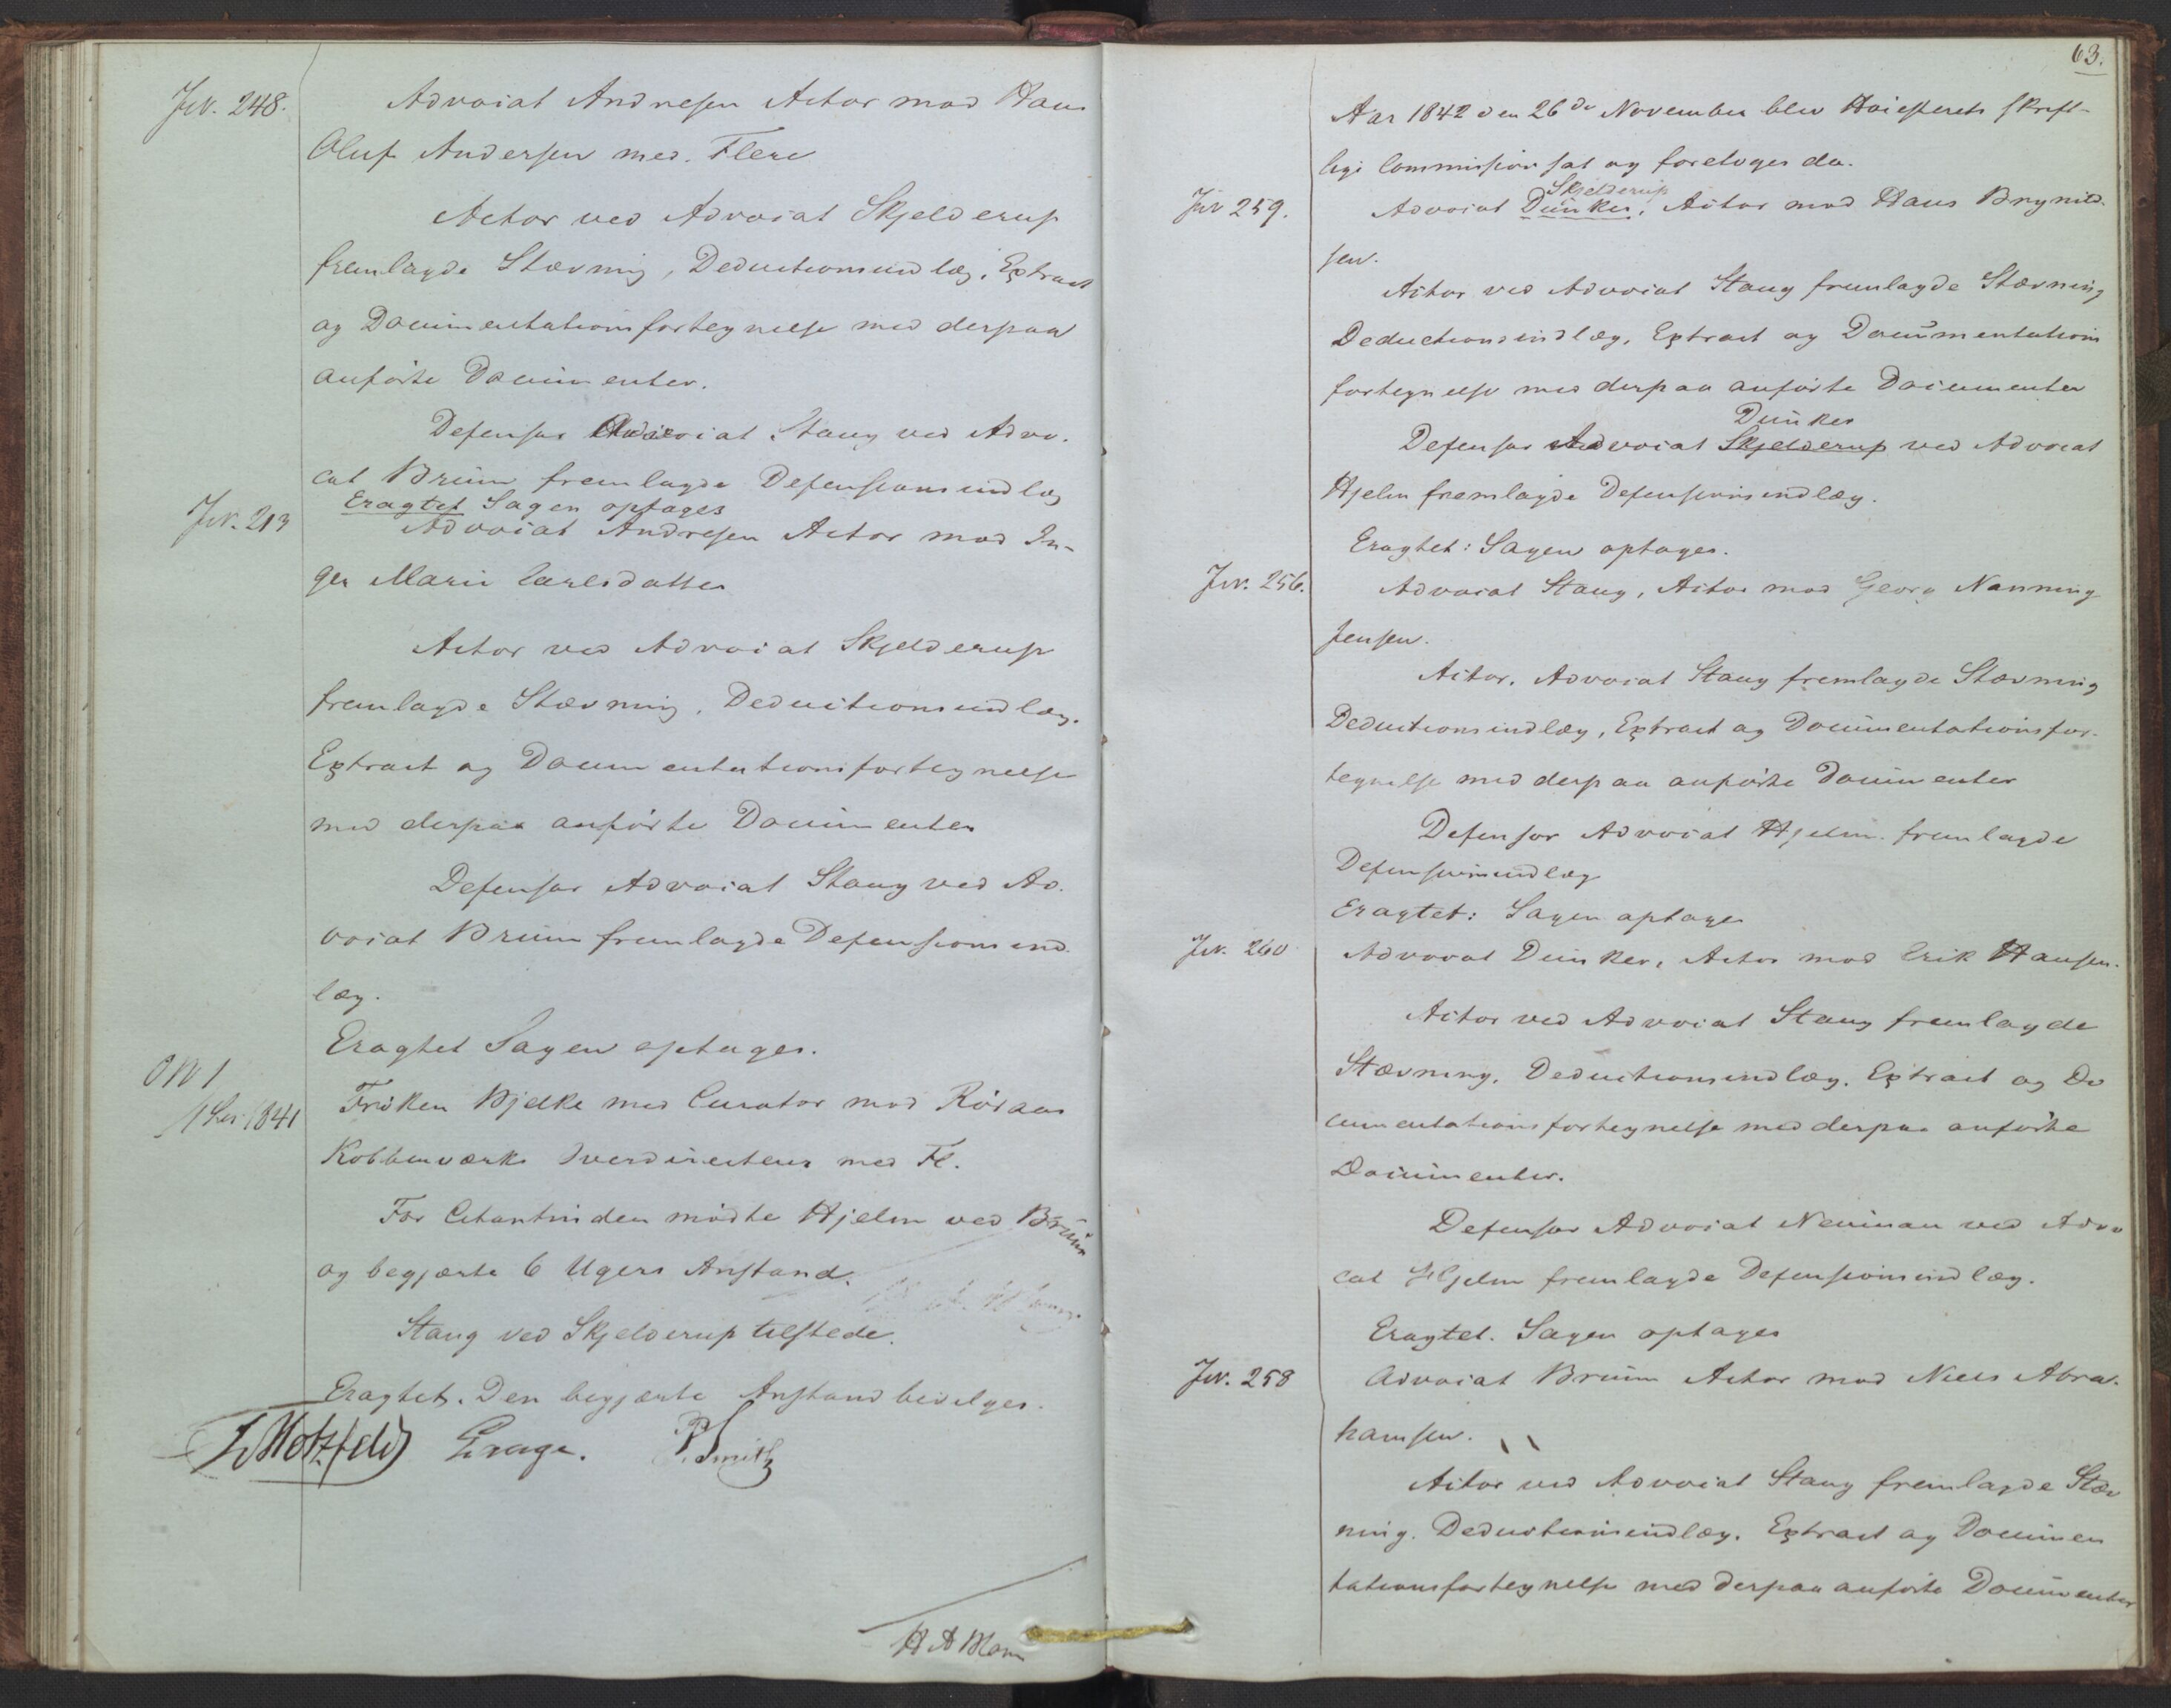 Jvr. 248.
Advocat Andresen Actor mod Hans
Oluf Andersen med Flere
Actor ved Advocat Skjelderup
fremlagde Stævning, Deductionsindlæg, Extract
og Documentationsfortegnelse med derpaa
anførte Documenter.
Defensor Advocat Stang ved Advo-
cat Bruun fremlagde Defensionsindlæg
Eragtet Sagen optages
Jvr. 213
Advocat Andresen Actor mod In-
ger Marie Carlsdatter
Actor ved Advocat Skjelderup
fremlagde Stævning, Deductionsindlæg.
Extract og Documentationsfortegnelse
med derpaa anførte Documenter
Defensor Advocat Stang ved Ad-
vocat Bruun fremlagde Defensionsind-
læg.
Eragtet Sagen optages.
1841
Frøken Bjelke med Curator mod Röraas
Kobberværks Overdirecteur med Fl.
For Citantinden mødte Hjelm ved Bruun
og begjærte 6 Ugers Anstand.
Stang ved Skjelderup tilstede.
Eragtet. Den begjærte Anstand bevilges.
Motzfeldt Krage. P. Smith
63.
Aar 1842 den 26de November blev Høiesterets skrift-
lige Commission sat og foretoges da.
Jvr 259.
Skjelderup
Advocat Dunker, Actor mod Hans Brynild-
sen.
Actor ved Advocat Stang fremlagde Stævning
Deductionsindlæg, Extract og Documentations
fortegnelse med derpaa anførte Documenter
Dunker
Defensor Advocat Skjelderup ved Advocat
Hjelm fremlagde Defensionsindlæg.
Eragtet: Sagen optages.
Jvr. 256.
Advocat Stang, Actor mod Georg Nanning
Jensen.
Actor, Advocat Stang fremlagde Stævning
Deductionsindlæg, Extract og Documentationsfor-
tegnelse med derpaa anførte Documenter
Defensor Advocat Hjelm fremlagde
Defensionsindlæg
Eragtet: Sagen optages
Jvr. 260
Advocat Dunker, Actor mod Erik Hansen.
Actor ved Advocat Stang fremlagde
Stævning, Deductionsindlæg, Extract og Do
cumentationsfortegnelse med derpaa anførte
Documenter.
Defensor Advocat Neuman ved Advo
cat Hjelm fremlagde Defensionsindlæg.
Eragtet. Sagen optages
Jvr. 258
Advocat Bruun Actor mod Niels Abra-
hamsen.
Actor ved Advocat Stang fremlagde Stæv
ning. Deductionsindlæg. Extract og Documen
tationsfortegnelse med derpaa anførte Documenter